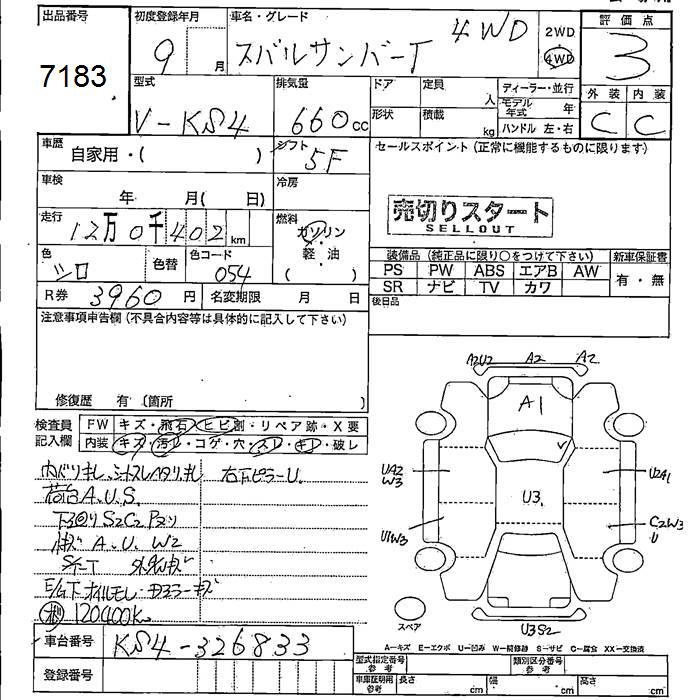 出品番号
7183
初度登録年月
9 月
車名・グレード
スバルサンバーT 4WD
2WD
4WD
評価点
3
外装 内装
C C
型式
V-KS4
排気量
660 cc
ドア
形状
定員
人
積載
kg
ディーラー・並行
モデル年式 年
ハンドル 左・右
車歴
自家用・( )
シフト
5F
セールスポイント(正常に機能するものに限ります)
売切りスタート
SELLOUT
車検
年 月( 日)
冷房
走行
12万0千402 km
燃料
ガソリン
軽・油
( )
色
シロ
色替
色コード
054
R券 3960 円
名変期限 月 日
装備品(純正品に限り○をつけて下さい)
新車保証書
PS PW ABS エアB AW
SR ナビ TV カワ
有・無
後日品
注意事項申告欄(不具合内容等は具体的に記入して下さい)
修復歴 有〔箇所 〕
検査員記入欄
FW キズ・飛石・ヒビ割・リペア跡・X要
内装 キズ・汚レ・コゲ・穴・スレ・キレ・破レ
右下ピラーU.
荷台A.U.S.
下回りS2C2
A.U.W2
E/G下オイルモレ
120400k
車台番号 KS4-326833
登録番号
A2U2 A2 A2
A1
UA2
W3
U3.
U2A1
U1W3
C2W3
U
U3S2
スペア
A-キズ E-エクボ U-凹み W-補修跡 S-サビ C-腐食 XX-交換済
型式指定番号 参考
類別区分番号 参考
車庫証明用 参考
長さ cm
幅 cm
高さ cm